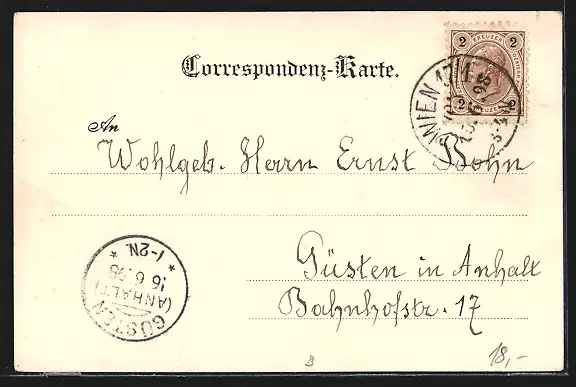 2 KREUZER 2
2 2
WIEN
6.98
Correspondenz-Karte.
An
Wohlgeb. Herrn Ernst Bohn
Güsten in Anhalt
Bahnhofstr. 17
GÜSTEN
(ANHALT)
16 6.98
* 1-2N. *
B
18,-